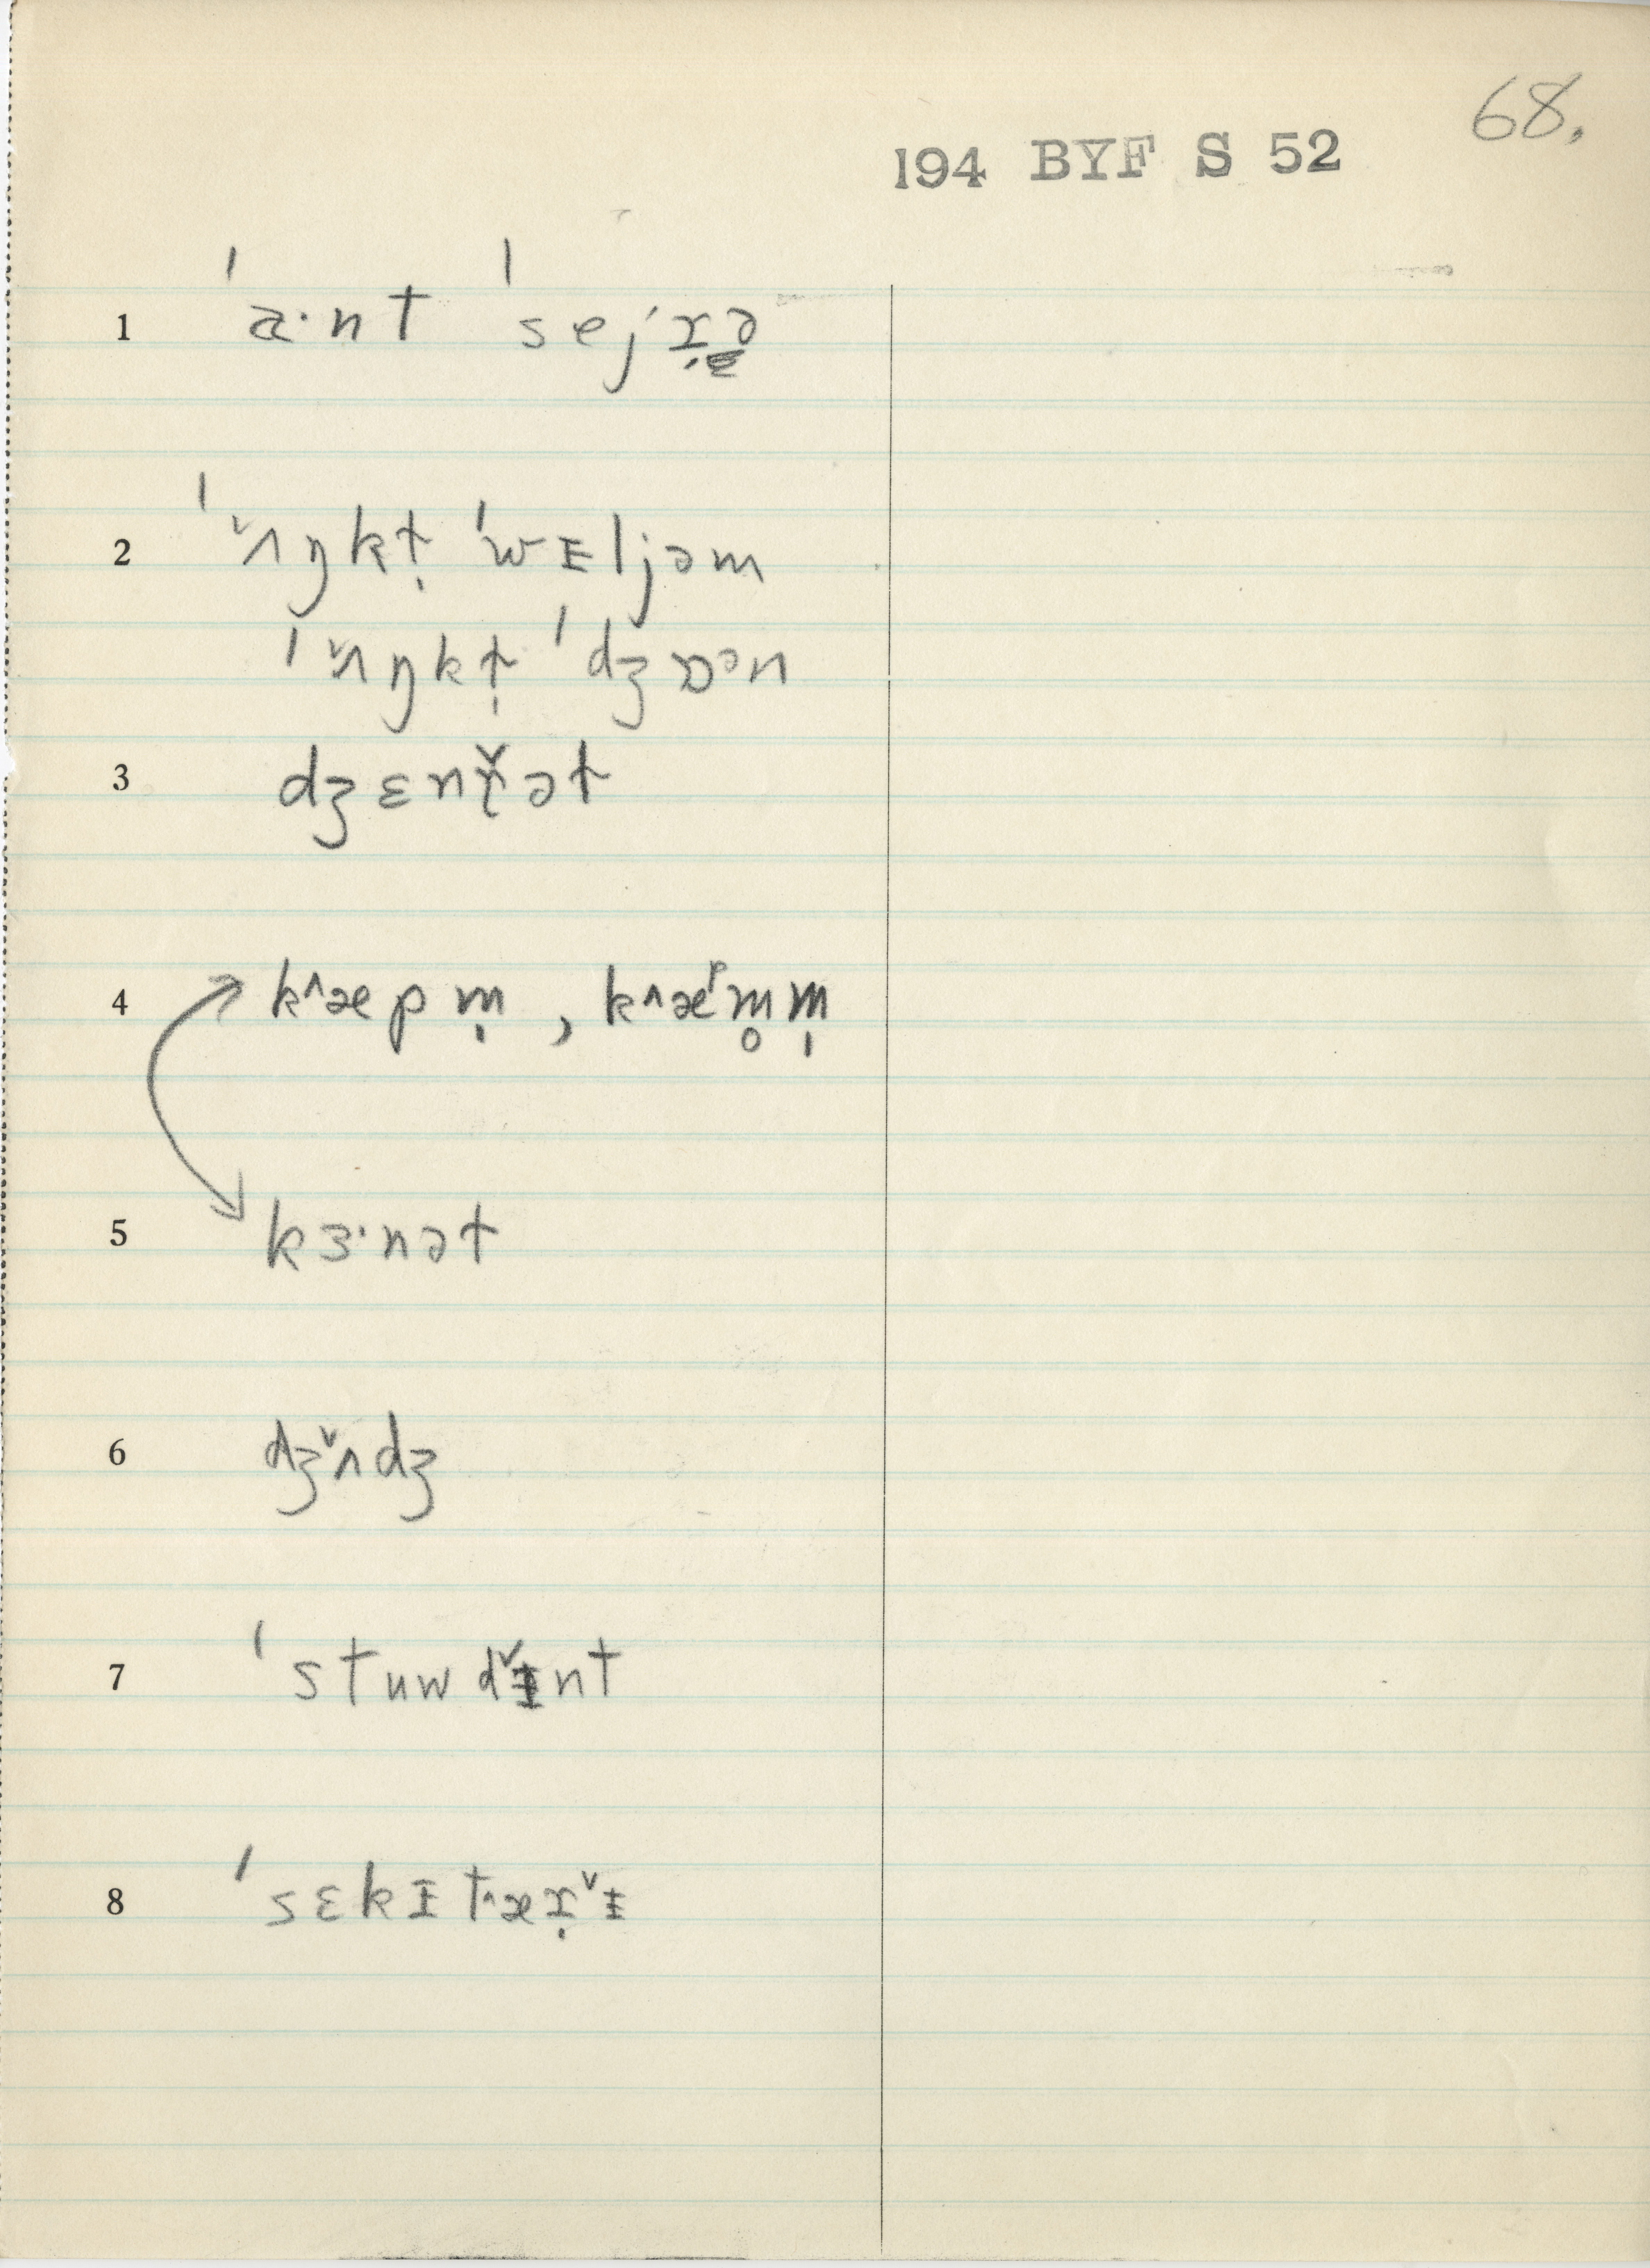 68.
194 BYF S 52
1 ˈa·nt ˈsejɪ̣ə
2 ˈ ˇʌŋkt̩ ˈwɪljəm
ˈ ˇʌŋkt̩ ˈdʒɒᵊn
3 dʒɛnt̬ət
4 k^æpm̩ , k^æᵖm̥m̩
5 kɜ·nət
6 dʒˇʌdʒ
7 ˈstuwdˇɪnt
8 ˈsɛkɪt^æɪ̣ˇɪ